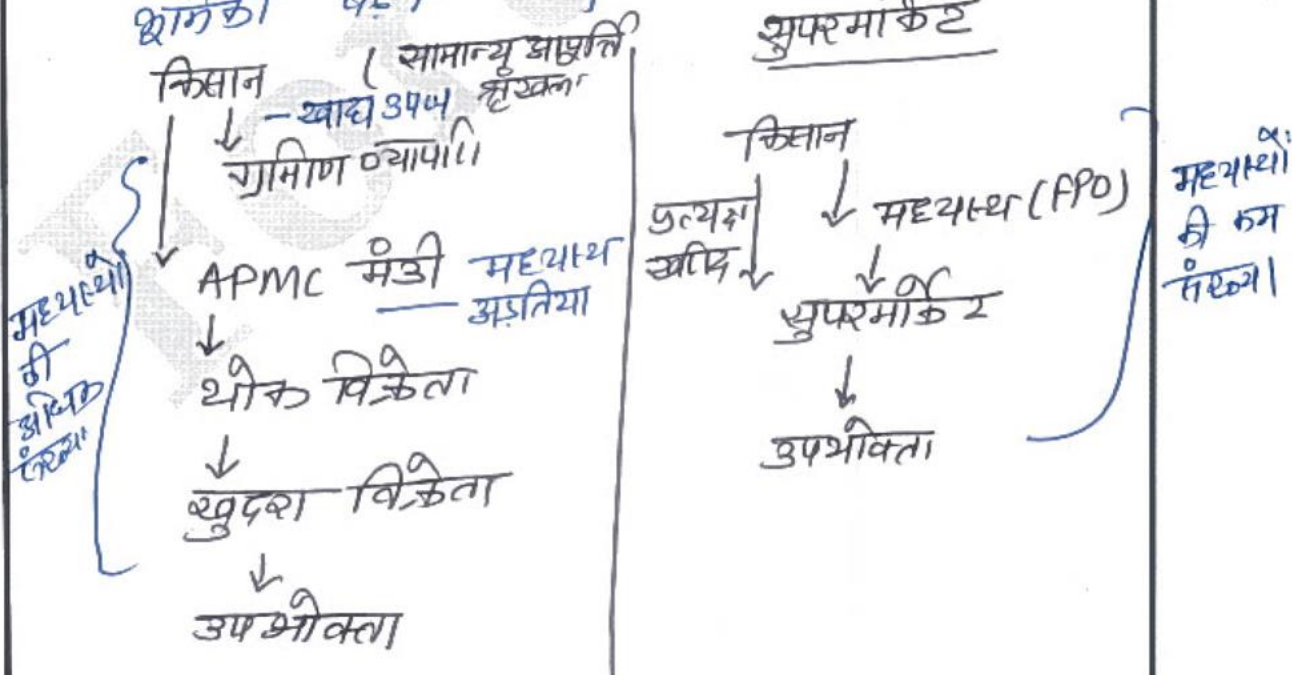 किसान
( सामान्य आपूर्ति
श्रृंखला
— खाद्य उपज
ग्रामिण व्यापारी
APMC मंडी मध्यस्थ
— अड़तिया
थोक विक्रेता
खुदरा विक्रेता
उपभोक्ता
मध्यस्थों
की
अधिक
संख्या
सुपरमार्केट
किसान
प्रत्यक्ष
खरीद
मध्यस्थ (FPO)
सुपरमार्केट
उपभोक्ता
मध्यस्थों
की कम
संख्या